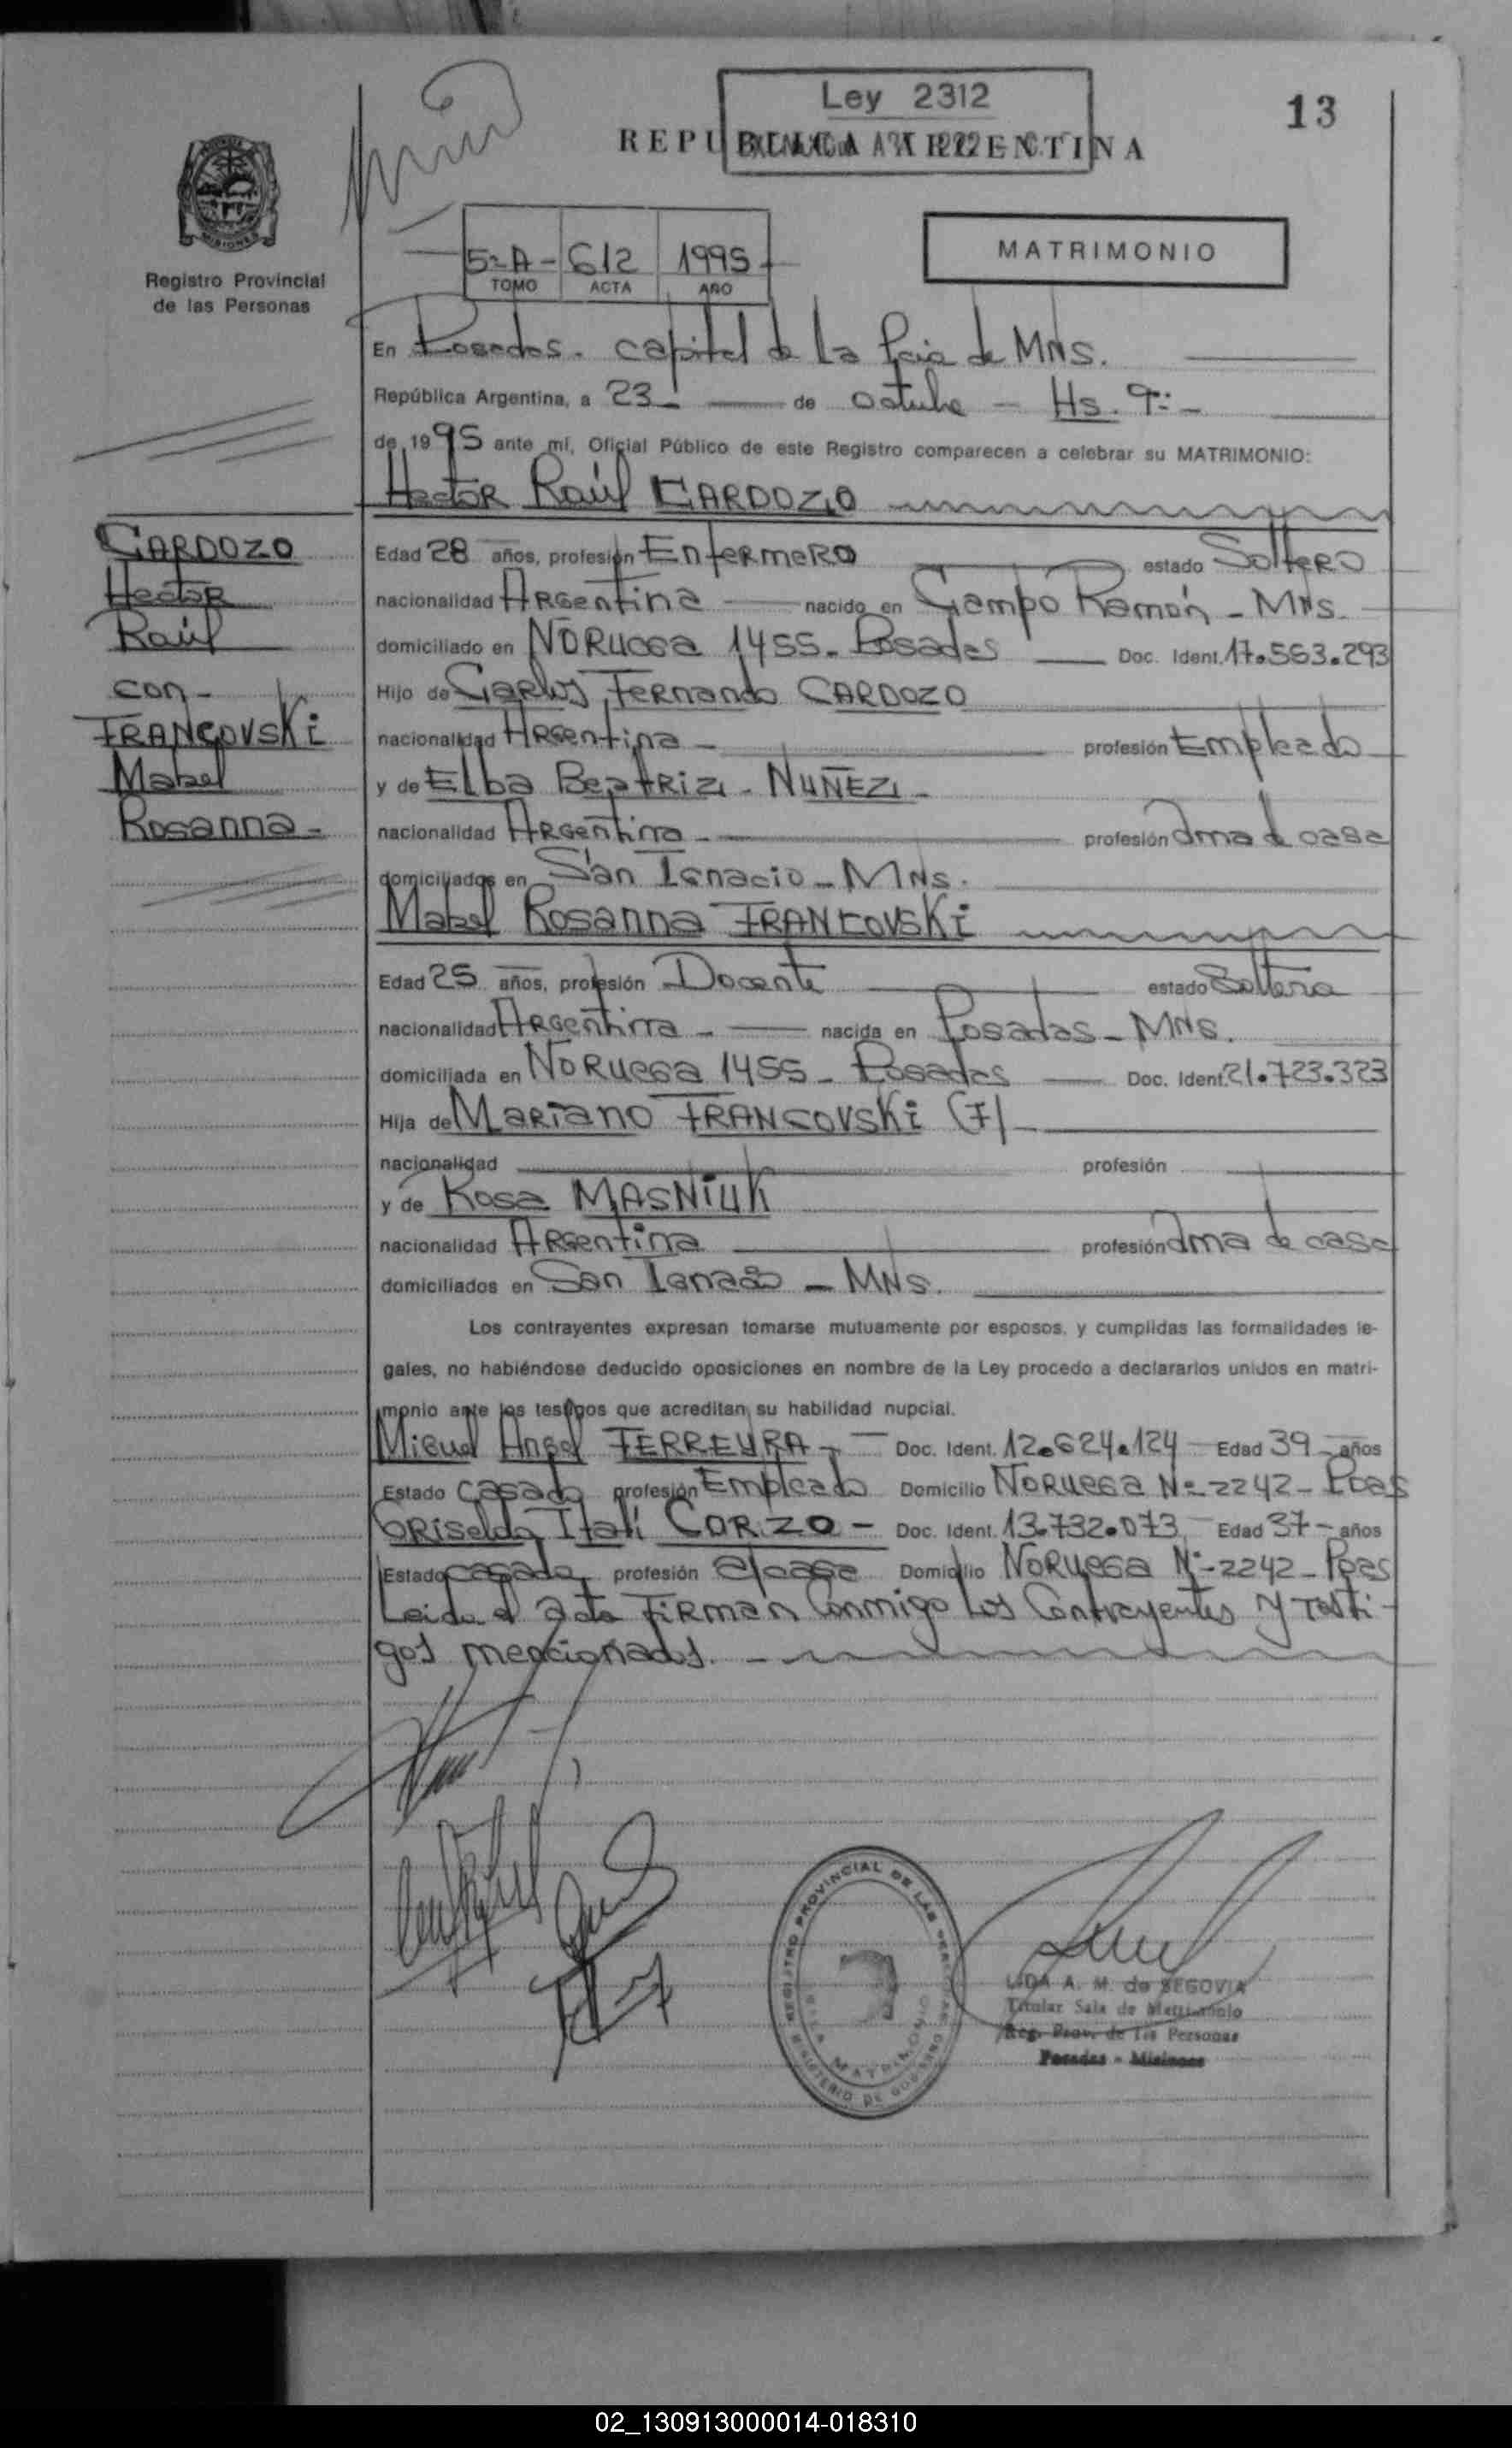 Ley 2312
13
REPUBLICA ARGENTINA
MATRIMONIO
5=A- 612 1995
TOMO ACTA AÑO
MISIONES
Registro Provincial
de las Personas
En Posadas. capital de La Pcia de MNS.
República Argentina, a 23 de octubre - Hs. 9:-
de 1995 ante mí, Oficial Público de este Registro comparecen a celebrar su MATRIMONIO:
Hector Raúl CARDOZO
CARDOZO
Hector
Raúl
con-
FRANCOVSKI
Mabel
Rosanna-
Edad 28 años, profesión Enfermero estado Soltero
nacionalidad Argentina nacido en Campo Ramón - MNS.
domiciliado en Noruega 1455. Posadas Doc. Ident. 17.563.293
Hijo de Carlos Fernando CARDOZO
nacionalidad Argentina - profesión Empleado
y de Elba Beatriz - NUÑEZ -
nacionalidad Argentina - profesión ama de casa
domiciliados en San Ignacio - MNS.
Mabel Rosanna FRANCOVSKI
Edad 25 años, profesión Docente estado Soltera
nacionalidad Argentina - nacida en Posadas - MNS.
domiciliada en Noruega 1455 - Posadas Doc. Ident. 21.723.323
Hija de Mariano FRANCOVSKI (F)
nacionalidad profesión
y de Rosa MASNIUK
nacionalidad Argentina profesión ama de casa
domiciliados en San Ignacio - MNS.
Los contrayentes expresan tomarse mutuamente por esposos, y cumplidas las formalidades le-
gales, no habiéndose deducido oposiciones en nombre de la Ley procedo a declararlos unidos en matri-
monio ante los testigos que acreditan su habilidad nupcial.
Miguel Angel FERREYRA - Doc. Ident. 12.624.124 Edad 39 - años
Estado casado profesión Empleado Domicilio Noruega Nº 2242 - Pdas
Griselda Itatí CORZO - Doc. Ident. 13.732.073 Edad 37 - años
Estado casada profesión a/casa Domicilio Noruega Nº 2242 - Pdas
Leida el acta Firman Conmigo Los Contrayentes y Testi-
gos mencionados. -
REGISTRO PROVINCIAL DE LAS PERSONAS
SALA MATRIMONIO
MINISTERIO DE GOBIERNO
LIDA A. M. de SEGOVIA
Titular Sala de Matrimonio
Reg. Prov. de las Personas
Posadas - Misiones
02_130913000014-018310